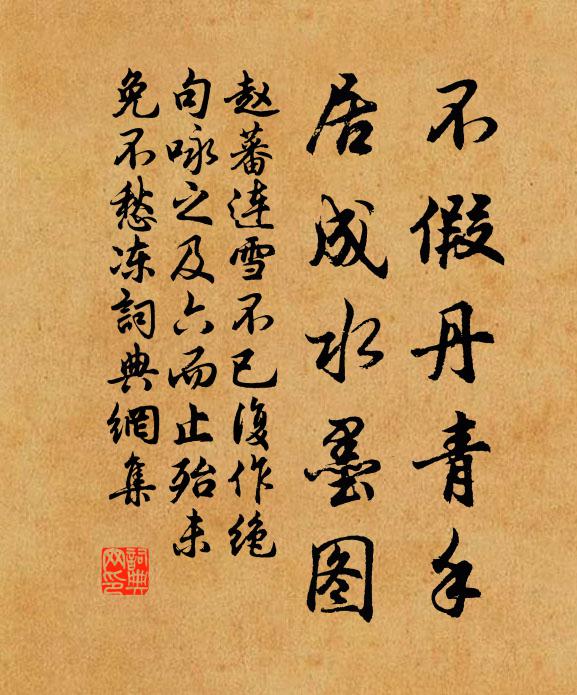 不假丹青手
居成水墨图
赵蕃连雪不已复作绝
句咏之及六而止殆未
免不愁冻詞典網集
詞典网印